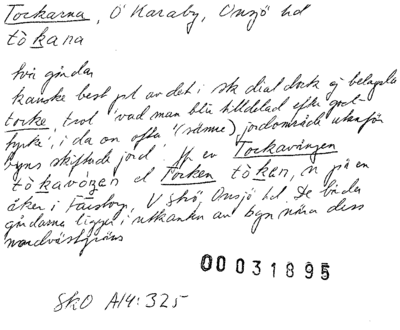 Tockarna, Ö Karaby, Onsjö hd
tò̀kana
två gårdar
kanske best pl av det i sk dial dock ej belagda
tocke, trol 'vad man blir tilldelad efter god-
tycke', i da on ofta '(sämre) jordområde utanför
byns skiftade jord. Jfr ev Tockavången
tòkavåŋen el Tocken tòken, n på en
åker i Färstorp, V Skö, Onsjö hd. De båda
gårdarna ligger i utkanten av byn nära dess
nordvästgräns
00031895
SkO A14:325